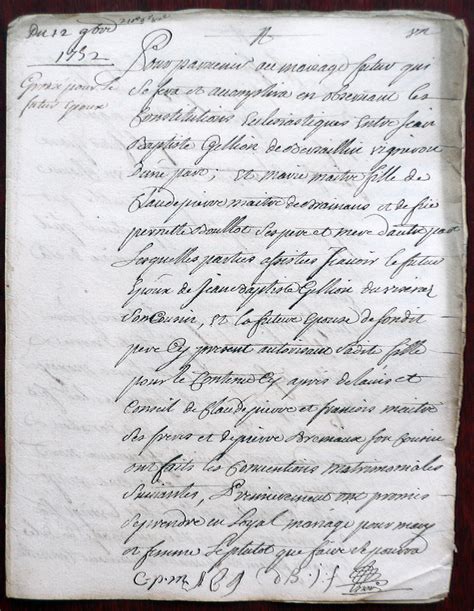 Du 12 9bre
1752
Grosse pour le
futur Epoux
Pour parvenir au mariage futur qui
se fera et accomplira en observant les
Constitutions Ecclesiastiques Entre Jean
Baptiste Gellion de vigneron
D'une part; et marie maitre fille de
Claude pierre maitre de et de feüe
pernette Doullot ses pere et mere d'autre part
Lesquelles parties assistées sçavoir le futur
Epoux de Jean Baptiste Gellion
son Cousin, et la future Epouse de sondit
pere Cy present autorisant sadite fille
pour le Contenu Cy apres de lavis et
Conseil de Claude pierre et francois maitre
ses freres et de pierre Bremaux son Cousin
ont faits les Conventions matrimoniales
Suivantes, Premierement ont promis
se prendre en Loyal mariage pour mary
et femme le plutot que faire se pourra
C.p.m